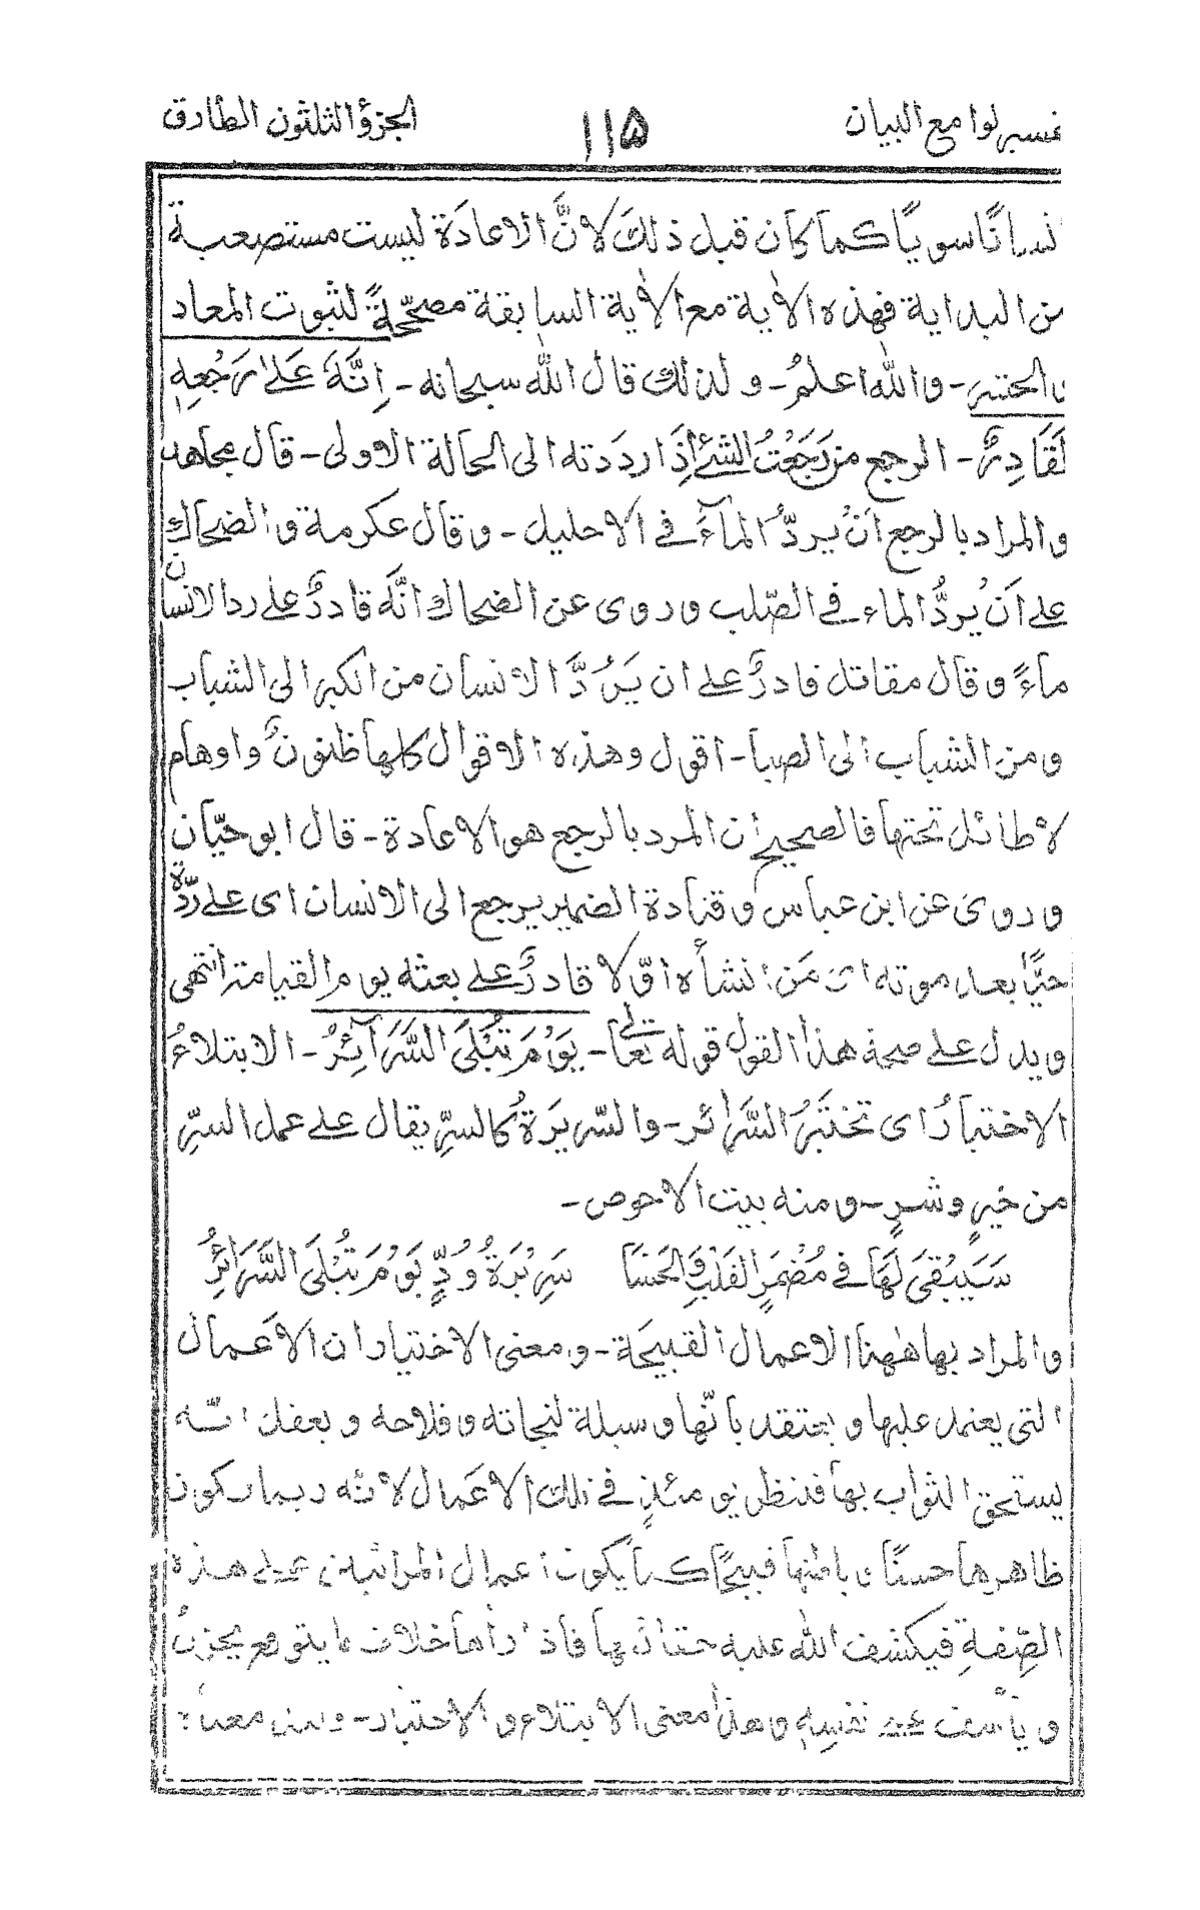 تفسير لوامع البيان ۱۱۵ الجزؤ الثلثون الطارق
انسانًا سويًا كما كان قبل ذلك لانَّ الاعادَة ليست مستصعبة
من البداية فهذه الاٰية مع الاٰية السابقة مصحّحةً لثبوت المعاد
والله اعلمُ - و لذلك قال الله سبحانه - اِنَّهٗ عَلٰى رَجْعِهٖ
لَقَادِرٌ - الرجع من رَجَعْتُ الشئ اِذَا رددته الى الحالة الاولى - قال مجاهد
والمراد بالرجع اَنْ يردَّ المآءَ فى الاحليل - و قال عكرمة و الضحاك
على اَنْ يردَّ الماء فى الصّلب و روى عن الضحاك انَّهٗ قادرٌ على رد الانسان
ماءً و قال مقاتل قادرٌ على ان يَرُدَّ الانسان من الكبر الى الشباب
ومن الشباب الى الصبا - اقول وهذه الاقوال كلها ظنونٌ و اوهام
لا طائل تحتها فالصحيح ان المرد بالرجع هو الاعادة - قال ابو حيّان
و روى عن ابن عباس و قتادة الضمير يرجع الى الانسان اى على ردّه
حيًّا بعد موته اى مَن انشأه اوّلا قادرٌ على بعثه يوم القيامة انتهى
ويدل على صحة هذا القول قوله تعالى - يَوْمَ تُبْلَى السَّرَآئِرُ - الابتلاءُ
الاختبارُ اى تختَبَرُ السَّرائر - والسّريرَةُ كالسرِّ يقال على عمل السرِّ
من خيرٍ وشرٍ - و منه بيت الاحوص -
سَيَبْقَى لَهَا فى مُضْمَرِ القَلْبِ وَالحَشَا سَرِيْرَةُ وُدٍّ يَوْمَ تُبْلَى السَّرَائِرُ
والمراد بها ههنا الاعمال القبيحة - و معنى الاختيار ان الاعمال
التى يعتمد عليها و يعتقد بانّها وسيلة لنجاته و فلاحه و انّه
يستحق الثواب بها فننظر يومئذٍ فى تلك الاعمال لانّه ربما يكون
ظاهرها حسنًا باطنها قبيحًا كما يكون اعمال المرائين على هذه
الصِّفةِ فيكشف الله عليه فاذا راٰها خلاف ما يتوهم يحزنُ
و يأسف على نفسهٖ وهذا معنى الابتلاء و الاختبار -